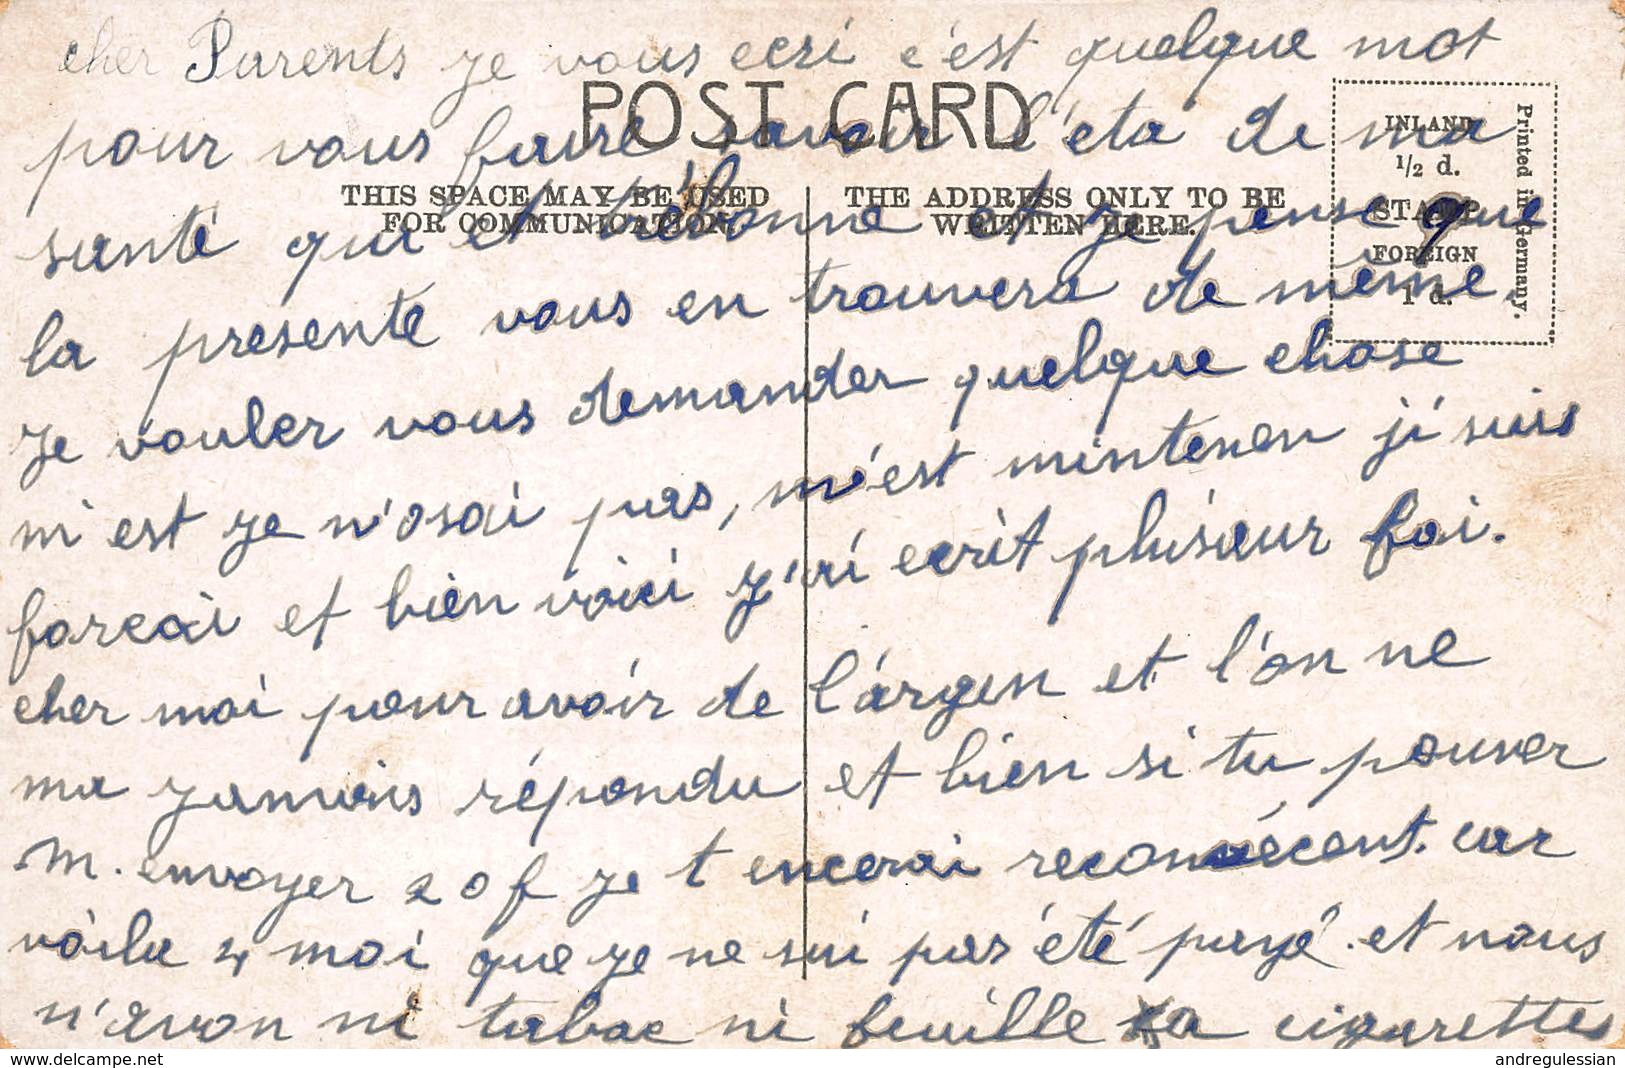 cher Parents je vous ecri c'est quelque mot
POST CARD
pour vous faire savoir l'eta de ma
THIS SPACE MAY BE USED
FOR COMMUNICATION.
THE ADDRESS ONLY TO BE
WRITTEN HERE.
INLAND
1/2 d.
STAMP
FOREIGN
1 d.
Printed in Germany.
santé qui et très bonne et je pense que
la presente vous en trouvera de même.
Je vouler vous demander quelque chose
m'est je n'osai pas, m'est mintenon ji suis
forcai et bien voici j'ai ecrit plusieur foi.
cher moi pour avoir de l'argen et l'on ne
ma jamais répondu et bien si tu pouver
M. envoyer 20 f je t encerai reconnécent. car
voila 4 moi que je ne sui pas été payé. et nous
n'avon ni tabac ni feuille a cigarettes
delcampe.net
andregulessian